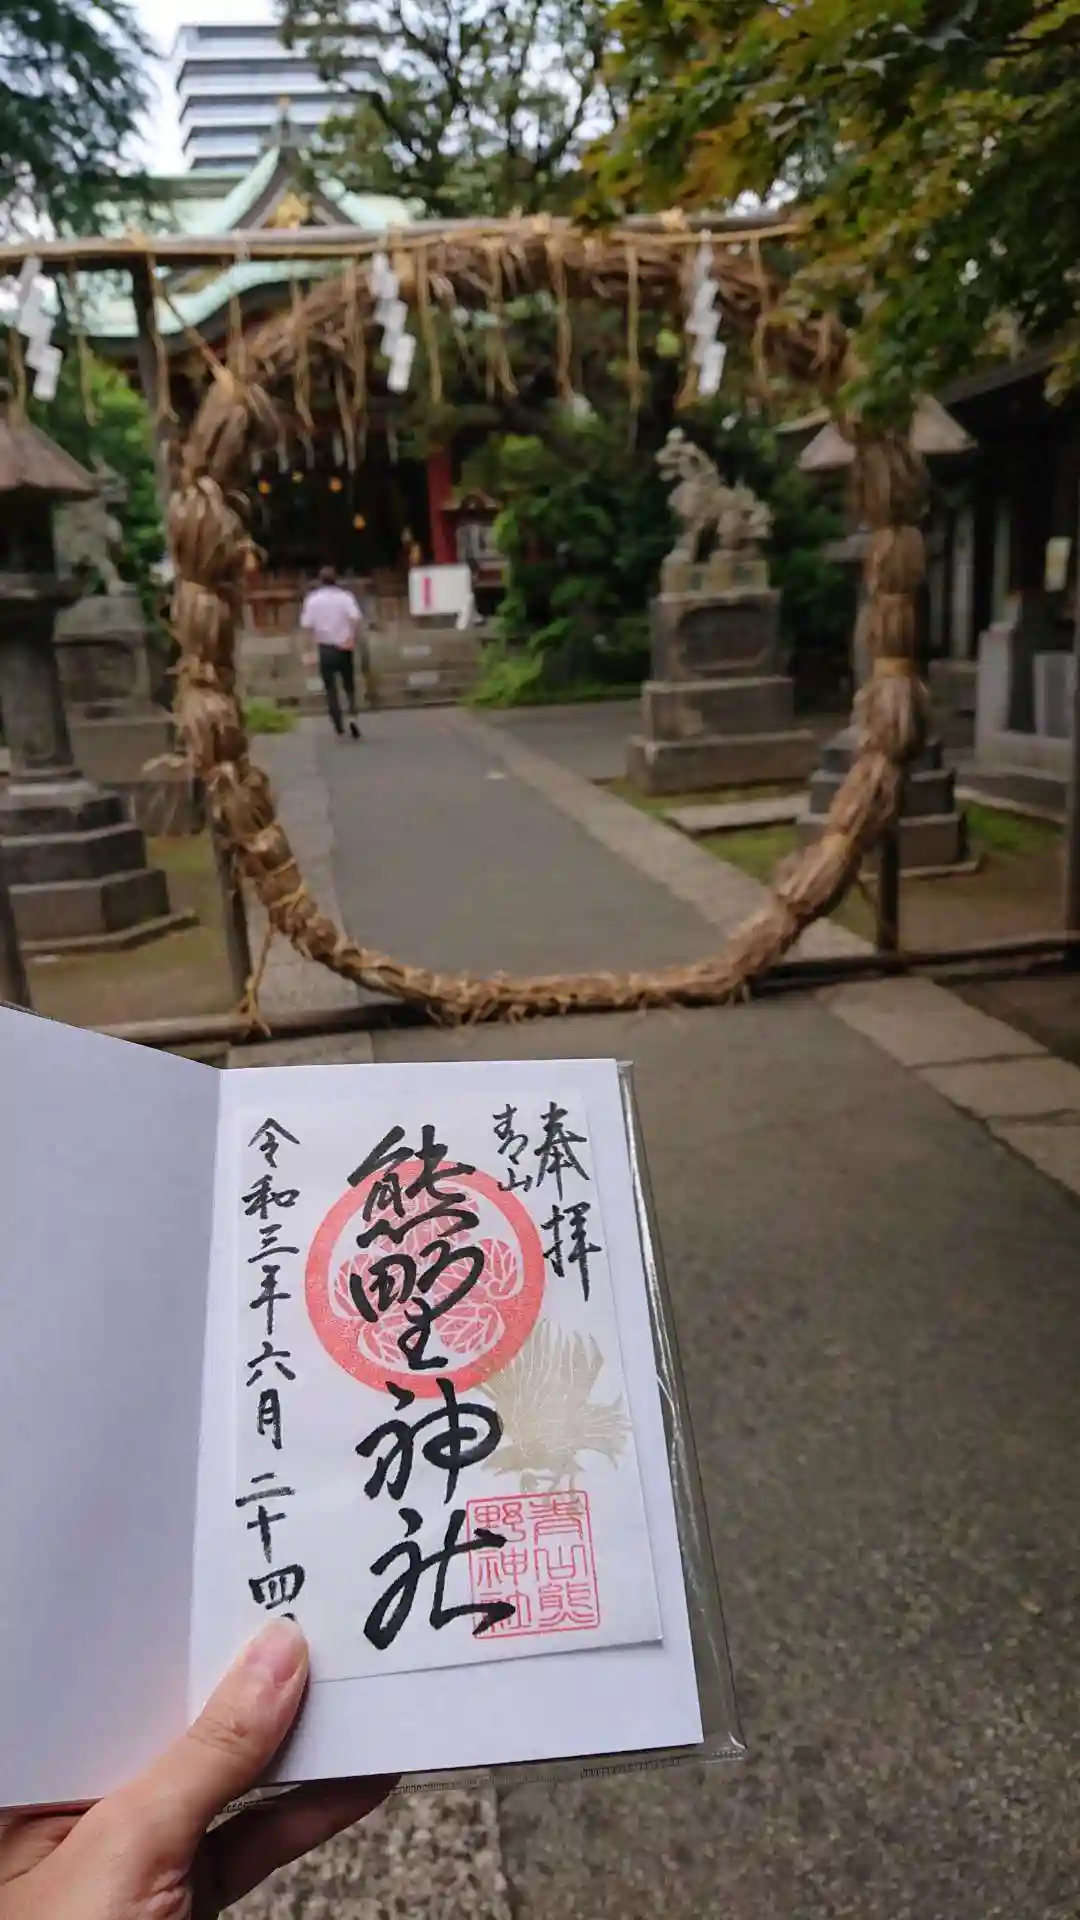 奉拝
青山
熊野神社
令和三年六月二十四
青山熊
野神社